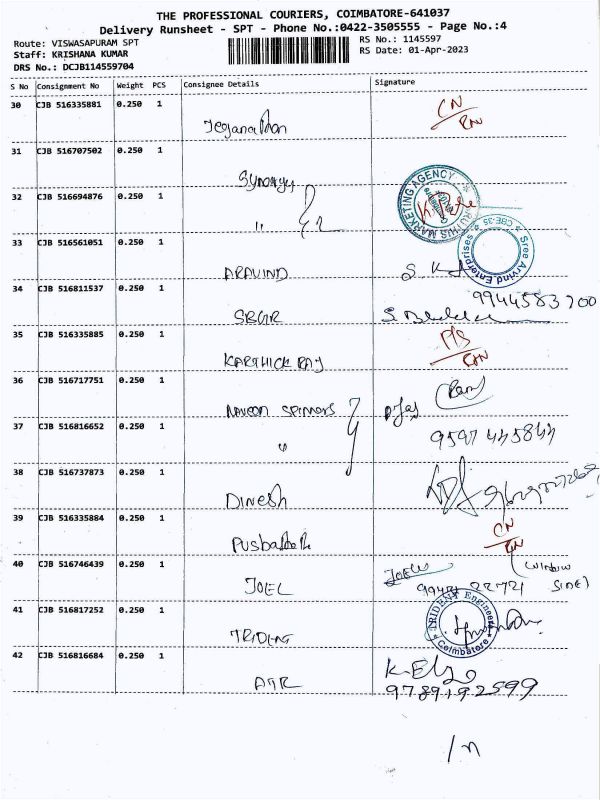 THE PROFESSIONAL COURIERS, COIMBATORE-641037
Delivery Runsheet - SPT - Phone No.:0422-3505555 - Page No.:4
Route: VISWASAPURAM SPT
RS No.: 1145597
Staff: KRISHANA KUMAR
RS Date: 01-Apr-2023
DRS No.: DCJB114559704
S No Consignment No Weight PCS Consignee Details Signature
30 CJB 516335881 0.250 1
CN
31 CJB 516707502 0.250 1
Synergy
MARKETING AGENCY
32 CJB 516694876 0.250 1
"
CBE-35
Sree Arvind Enterprises
33 CJB 516561051 0.250 1
ARAVIND
34 CJB 516811537 0.250 1
9944583200
35 CJB 516335885 0.250 1
KARTHICK RAJ
36 CJB 516717751 0.250 1
NAVEEN SPINNERS
37 CJB 516816652 0.250 1
"
9597445844
38 CJB 516737873 0.250 1
DINESH
39 CJB 516335884 0.250 1
CN
40 CJB 516746439 0.250 1
(WINDOW
SIDE)
JOEL
41 CJB 516817252 0.250 1
TRIDENT Engineers
Coimbatore
TRIDENT
42 CJB 516816684 0.250 1
9789192599